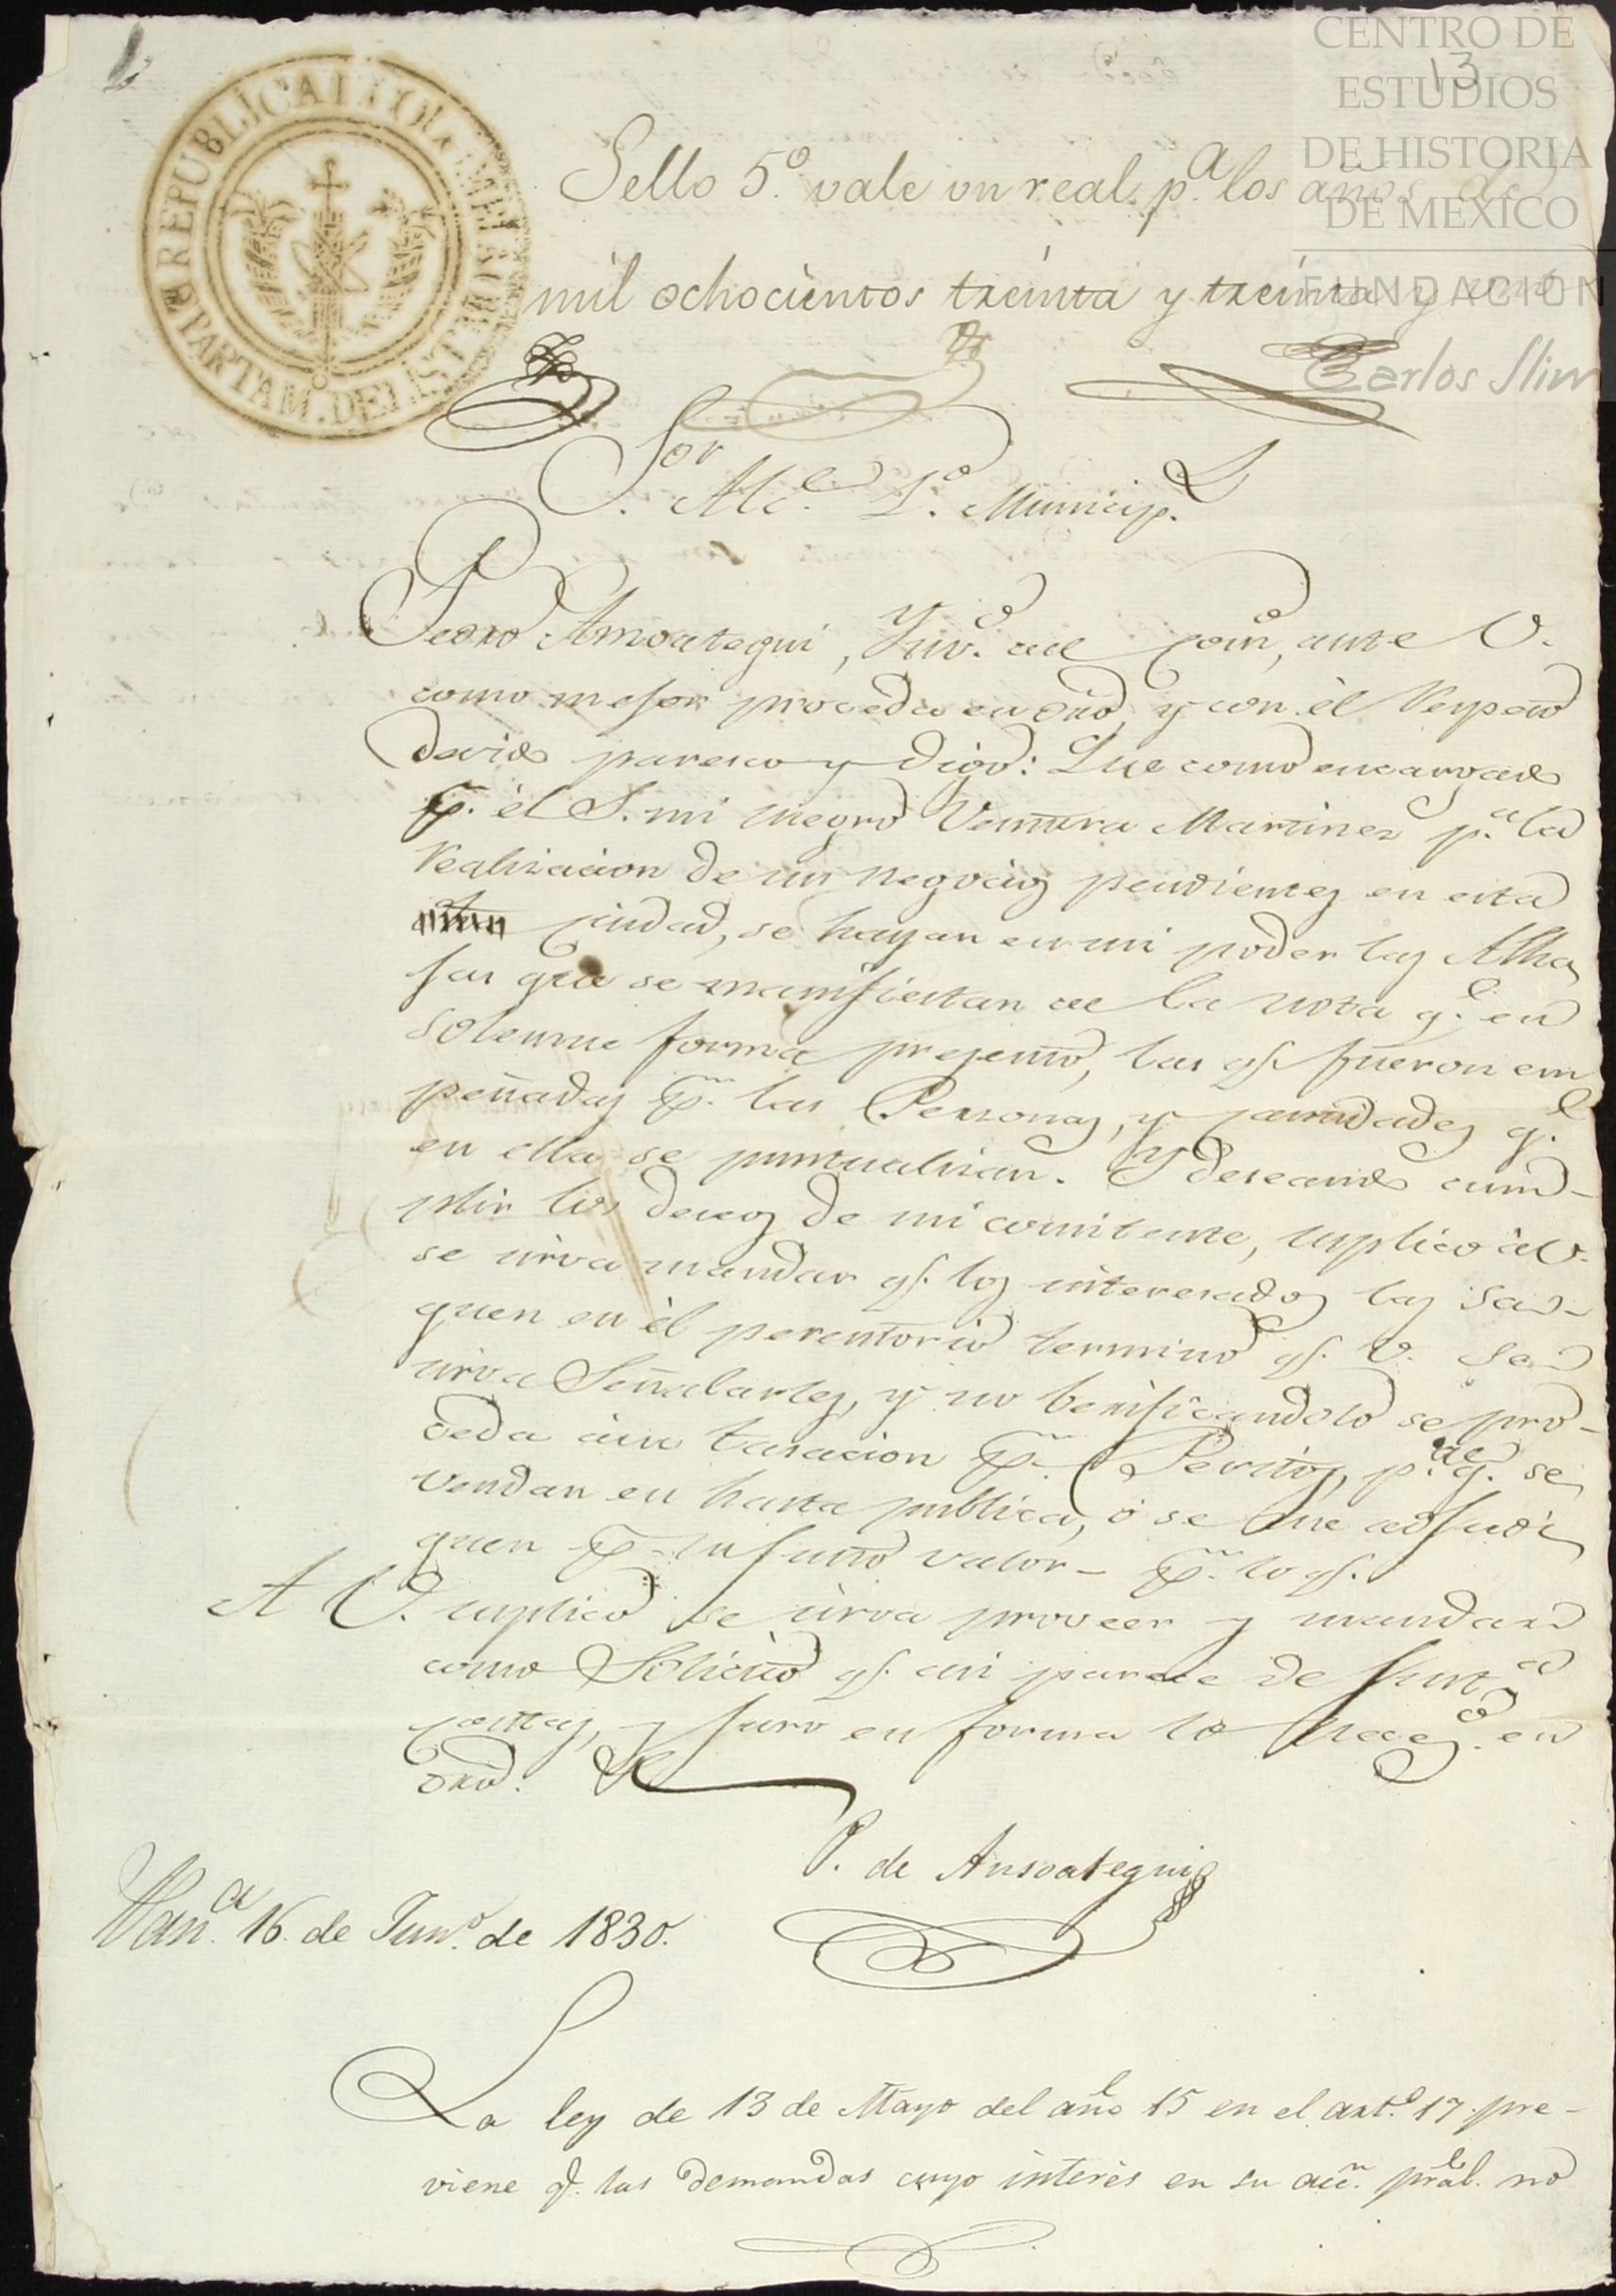 CENTRO DE
ESTUDIOS
DE HISTORIA
DE MEXICO
FUNDACIÓN
Carlos Slim
13
REPUBLICA
DEPARTAM. DEL ISTMO
Sello 5.º vale un real p.ª los años de
mil ochocientos treinta y treinta y uno
Sor
Alc.e 2.º Municip.l
Pedro Ansoategui, del Com, ante V.
como mejor proceda en dró, y con el Respeto
devido paresco y digo: Que como encargado
p. el S. mi suegro Ventura Martinez p.ª la
realisacion de sus negocios pendientes en esta
ciudad, se hayan en mi poder las Alha
jas que se manifiestan de la nota q.e en
solemne forma presento, las q. fueron em
peñadas p. las Personas, y cantidades q.e
en ella se puntualisan. Y deseando cum-
plir los deseos de mi comitente, suplico à V.
se sirva mandar q. los interesados las sa-
quen en el perentorio termino q. V. se
sirva Señalarles, y no berificandolo se pro-
ceda à su tasacion p. Peritos, p.ª q.e se
vendan en hasta publica, ó se me adjudi
quen p. su justo valor - p. lo q.
A V. suplico se sirva proveer y mandar
como Solicito q. asi parece de just.ª
costas, y juro en forma lo neces.º en
dró. &
P. de Ansoategui
Pan.ª 16. de Jun.º de 1830.
La ley de 13 de Mayo del año 15 en el art.º 17. pre-
viene q. las demandas cuyo interés en su acc.n pral. no